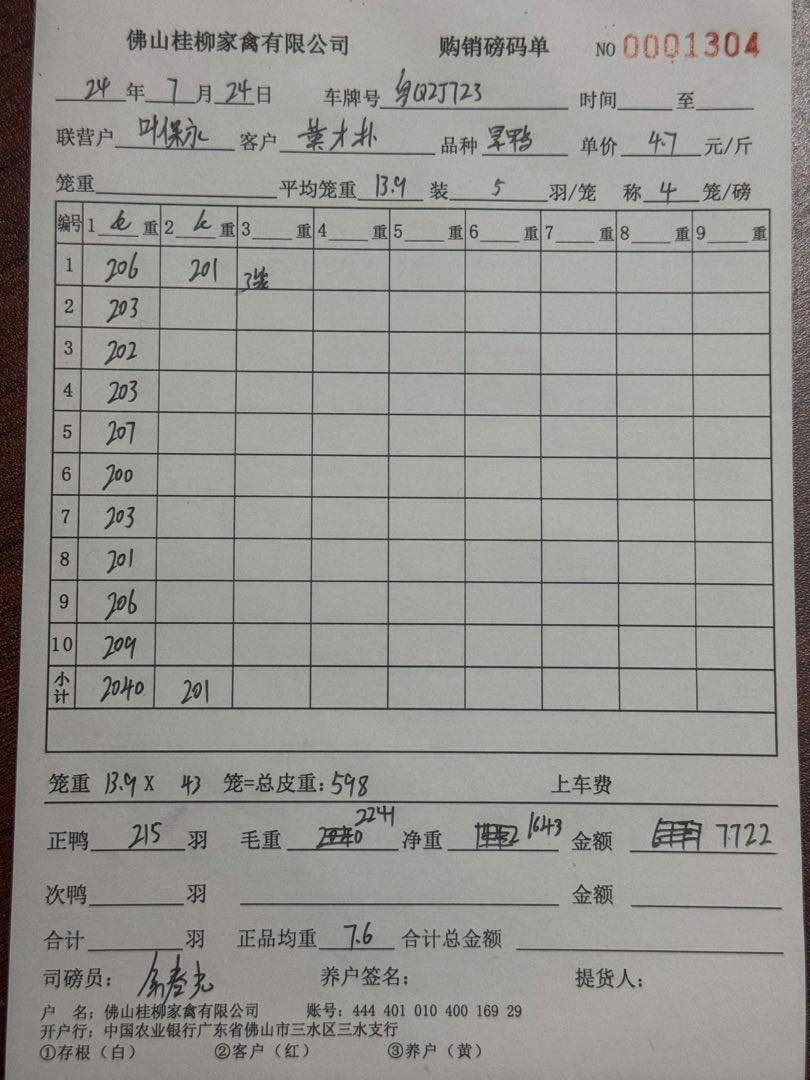 佛山桂柳家禽有限公司 购销磅码单 NO 0001304
24年7月24日 车牌号 粤Q2J723 时间 至
联营户 叶保永 客户 叶才朴 品种 旱鸭 单价 4.7 元/斤
笼重 平均笼重 13.9 装 5 羽/笼 称 4 笼/磅
编号 1 毛 重 2 毛 重 3 重 4 重 5 重 6 重 7 重 8 重 9 重
1 206 201 3笼
2 203
3 202
4 203
5 207
6 200
7 203
8 201
9 206
10 209
小计 2040 201
笼重 13.9 X 43 笼=总皮重:598 上车费
正鸭 215 羽 毛重 2241 净重 1643 金额 7722
次鸭 羽 金额
合计 羽 正品均重 7.6 合计总金额
司磅员: 养户签名: 提货人:
户 名:佛山桂柳家禽有限公司 账号:444 401 010 400 169 29
开户行:中国农业银行广东省佛山市三水区三水支行
①存根(白) ②客户(红) ③养户(黄)